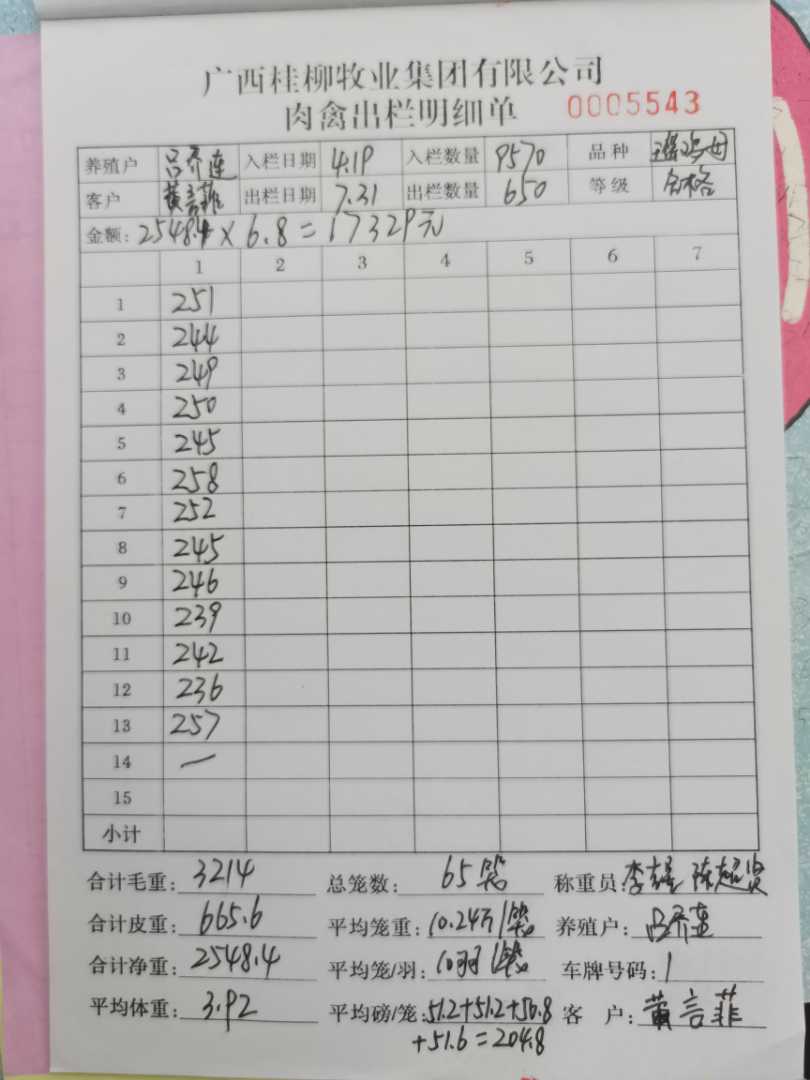 广西桂柳牧业集团有限公司
肉禽出栏明细单 0005543
养殖户 吕乔连 入栏日期 4.19 入栏数量 9570 品种 鸡母
客户 黄言菲 出栏日期 7.31 出栏数量 650 等级 合格
金额: 2548.4 × 6.8 = 17329元
1 2 3 4 5 6 7
1 251
2 244
3 249
4 250
5 245
6 258
7 252
8 245
9 246
10 239
11 242
12 236
13 257
14 一
15
小计
合计毛重: 3214 总笼数: 65笼 称重员: 李 陈超贤
合计皮重: 665.6 平均笼重: 10.24斤/笼 养殖户: 吕乔连
合计净重: 2548.4 平均笼/羽: 10羽/笼 车牌号码: 1
平均体重: 3.92 平均磅/笼: 51.2+51.2+50.8 客 户: 黄言菲
+51.6=204.8